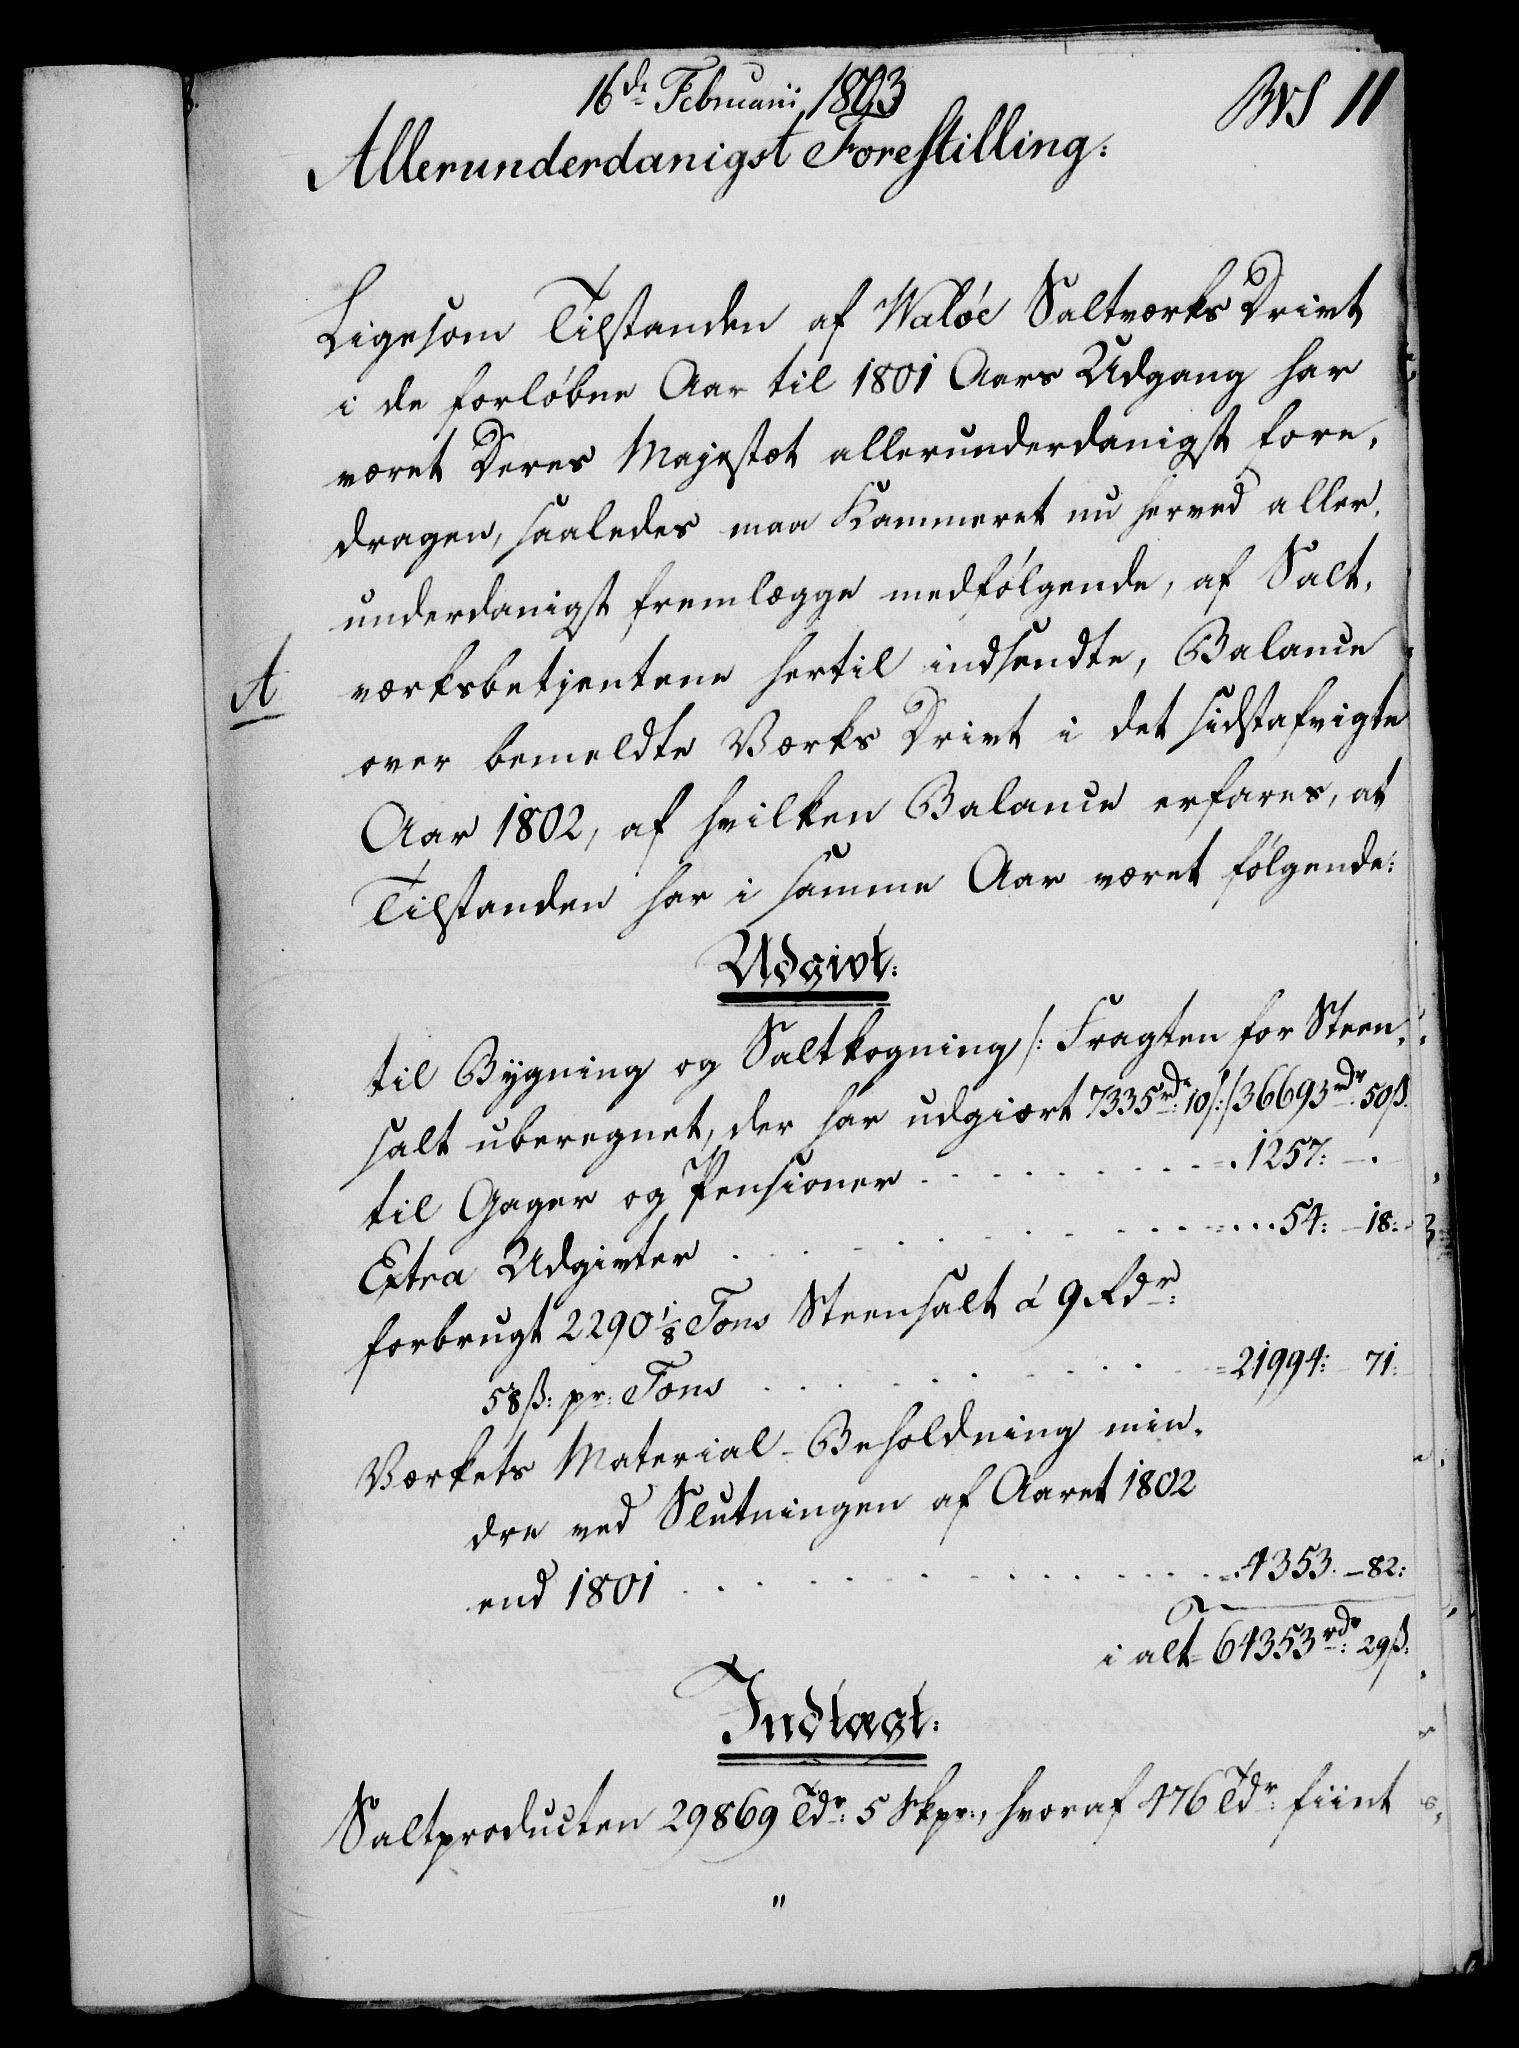 16de Februarii 1803
BVS 11
Allerunderdanigst Forestilling:
Ligesom Tilstanden af Waløe Saltværks Drivt
i de forløbne Aar til 1801 Aars Udgang har
været Deres Majestæt allerunderdanigst fore,
dragen, saaledes maa Kammeret nu herved aller,
underdanigst fremlægge medfølgende, af Salt,
A
værksbetjentene hertil indsendte, Balance
over bemeldte Værks Drivt i det sidstafvigte
Aar 1802, af hvilken Balance erfares, at
Tilstanden har i samme Aar været følgende:
Udgivt:
til Bygning og Saltkogning /: Fragten for Steen,
salt uberegnet, der har udgiort 7335rdr: 10ß:/ 36693rdr: 50ß.
til Gager og Pensioner . . . . . . 1257: — .
Extra Udgivter . . . . . . 54: — 18:
forbrugt 2290 1/8 Tons Steensalt á 9 Rdr:
58ß: pr: Tons . . . . . . 21994: 71:
Værkets Material-Beholdning min,
dre ved Slutningen af Aaret 1802
end 1801 . . . . . . 4353. — 82:
i alt 64353rdr: 29ß:
Indtægt:
Saltproducten 29869 Tdr: 5 Skpr:, hvoraf 476 Tdr: fiint
"